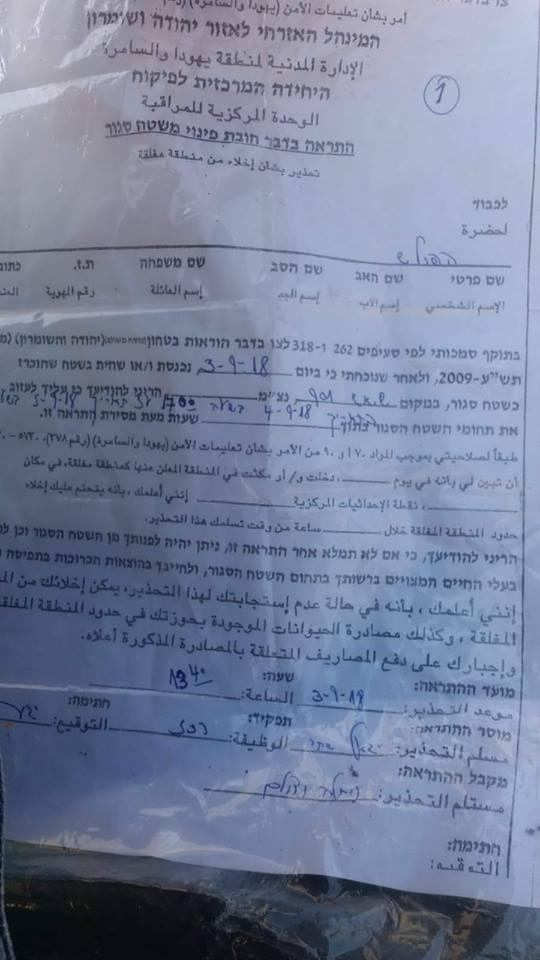 أمر بشأن تعليمات الأمن (يهودا والسامرة)
המינהל האזרחי לאזור יהודה ושומרון
الإدارة المدنية لمنطقة يهودا والسامرة
היחידה המרכזית לפיקוח
الوحدة المركزية للمراقبة
1
התראה בדבר חובת פינוי משטח סגור
تحذير بشأن إخلاء من منطقة مغلقة
לכבוד
لحضرة
שם פרטי שם האב שם הסב שם משפחה ת.ז.
الإسم الشخصي إسم الاب إسم الجد إسم العائلة رقم الهوية
בתוקף סמכותי לפי סעיפים 262 ו-318 לצו בדבר הוראות בטחון (יהודה והשומרון)
תש״ע-2009, ולאחר שנוכחתי כי ביום 3-9-18, נכנסת ו/או שהית בשטח שהוכרז
כשטח סגור, במקום נצ״מ הריני להודיעך כי עליך לעזוב
את תחומי השטח הסגור 4-9-18 שעות מעת מסירת התראה זו.
طبقاً لصلاحيتي بموجب المواد و ٩٠ من الأمر بشأن تعليمات الأمن (يهودا والسامرة) (رقم ٣٧٨)،
أن تبين لي بأنه في يوم دخلت و/ أو مكثت في المنطقة المعلن عنها كمنطقة مغلقة، في مكان
، نقطة الإحداثيات المركزية إنني أعلمك ، بأنه يتحتم عليك إخلاء
حدود المنطقة المغلقة خلال ساعة من وقت تسلمك هذا التحذير.
הריני להודיעך, כי אם לא תמלא אחר התראה זו, ניתן יהיה לפנותך מן השטח הסגור וכן
בעלי החיים המצויים ברשותך בתחום השטח הסגור, ולחייבך בהוצאות הכרוכות בתפיסה
إنني أعلمك ، بأنه في حالة عدم إستجابتك لهذا التحذير، يمكن إخلائك من
المغلقة ، وكذلك مصادرة الحيوانات الموجودة بحوزتك في حدود المنطقة المغلقة
وإجبارك على دفع المصاريف المتعلقة بالمصادرة المذكورة أعلاه.
מועד ההתראה: שעה:
موعد التحذير: 3-9-18 الساعة: 13:40
מוסר ההתראה: תפקיד: חתימה:
مسلم التحذير: الوظيفة: التوقيع:
מקבל ההתראה:
مستلم التحذير:
חתימה:
التوقيع: